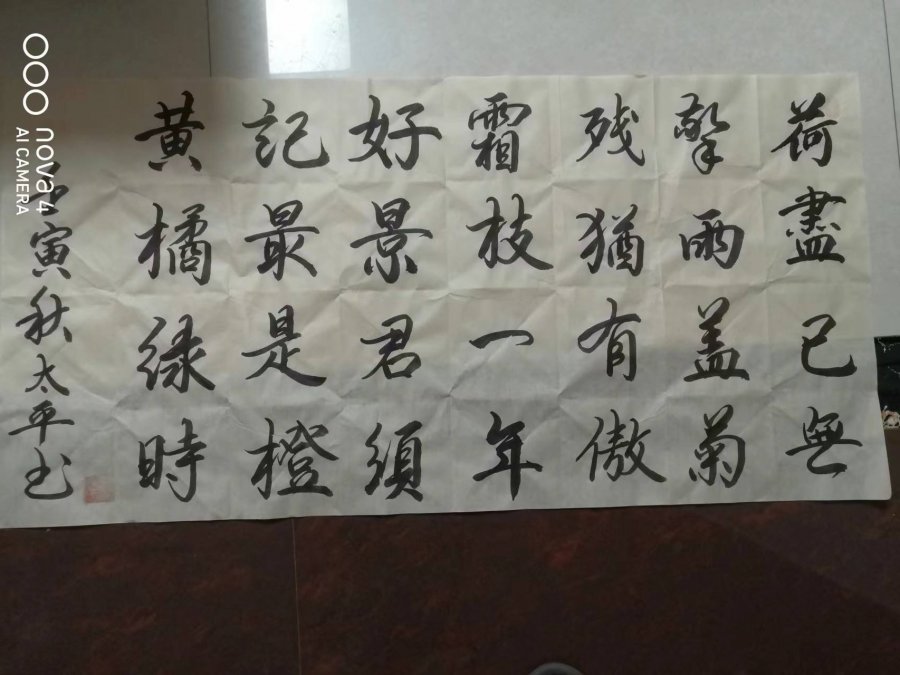 荷盡已無
擎雨盖菊
残猶有傲
霜枝一年
好景君須
記最是橙
黄橘緑時
壬寅秋太平书
nova 4
AI CAMERA